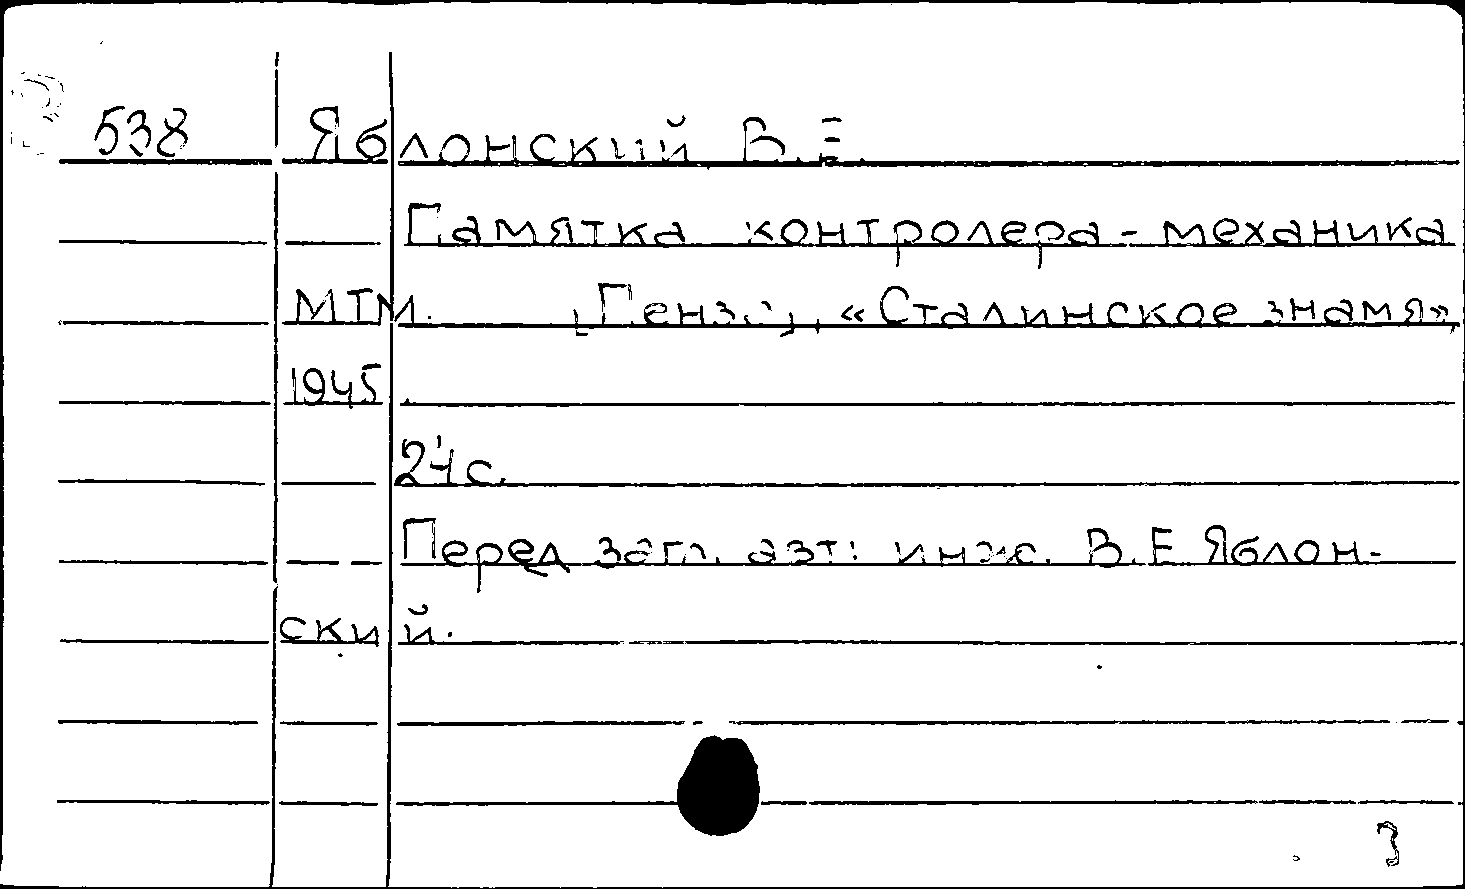 538 Яблонский В.Е.
Памятка контролера-механика
МТМ. [Пенза], «Сталинское знамя»,
1945.
24 с.
Перед загл. авт: инж. В.Е Яблон-
ский.
3